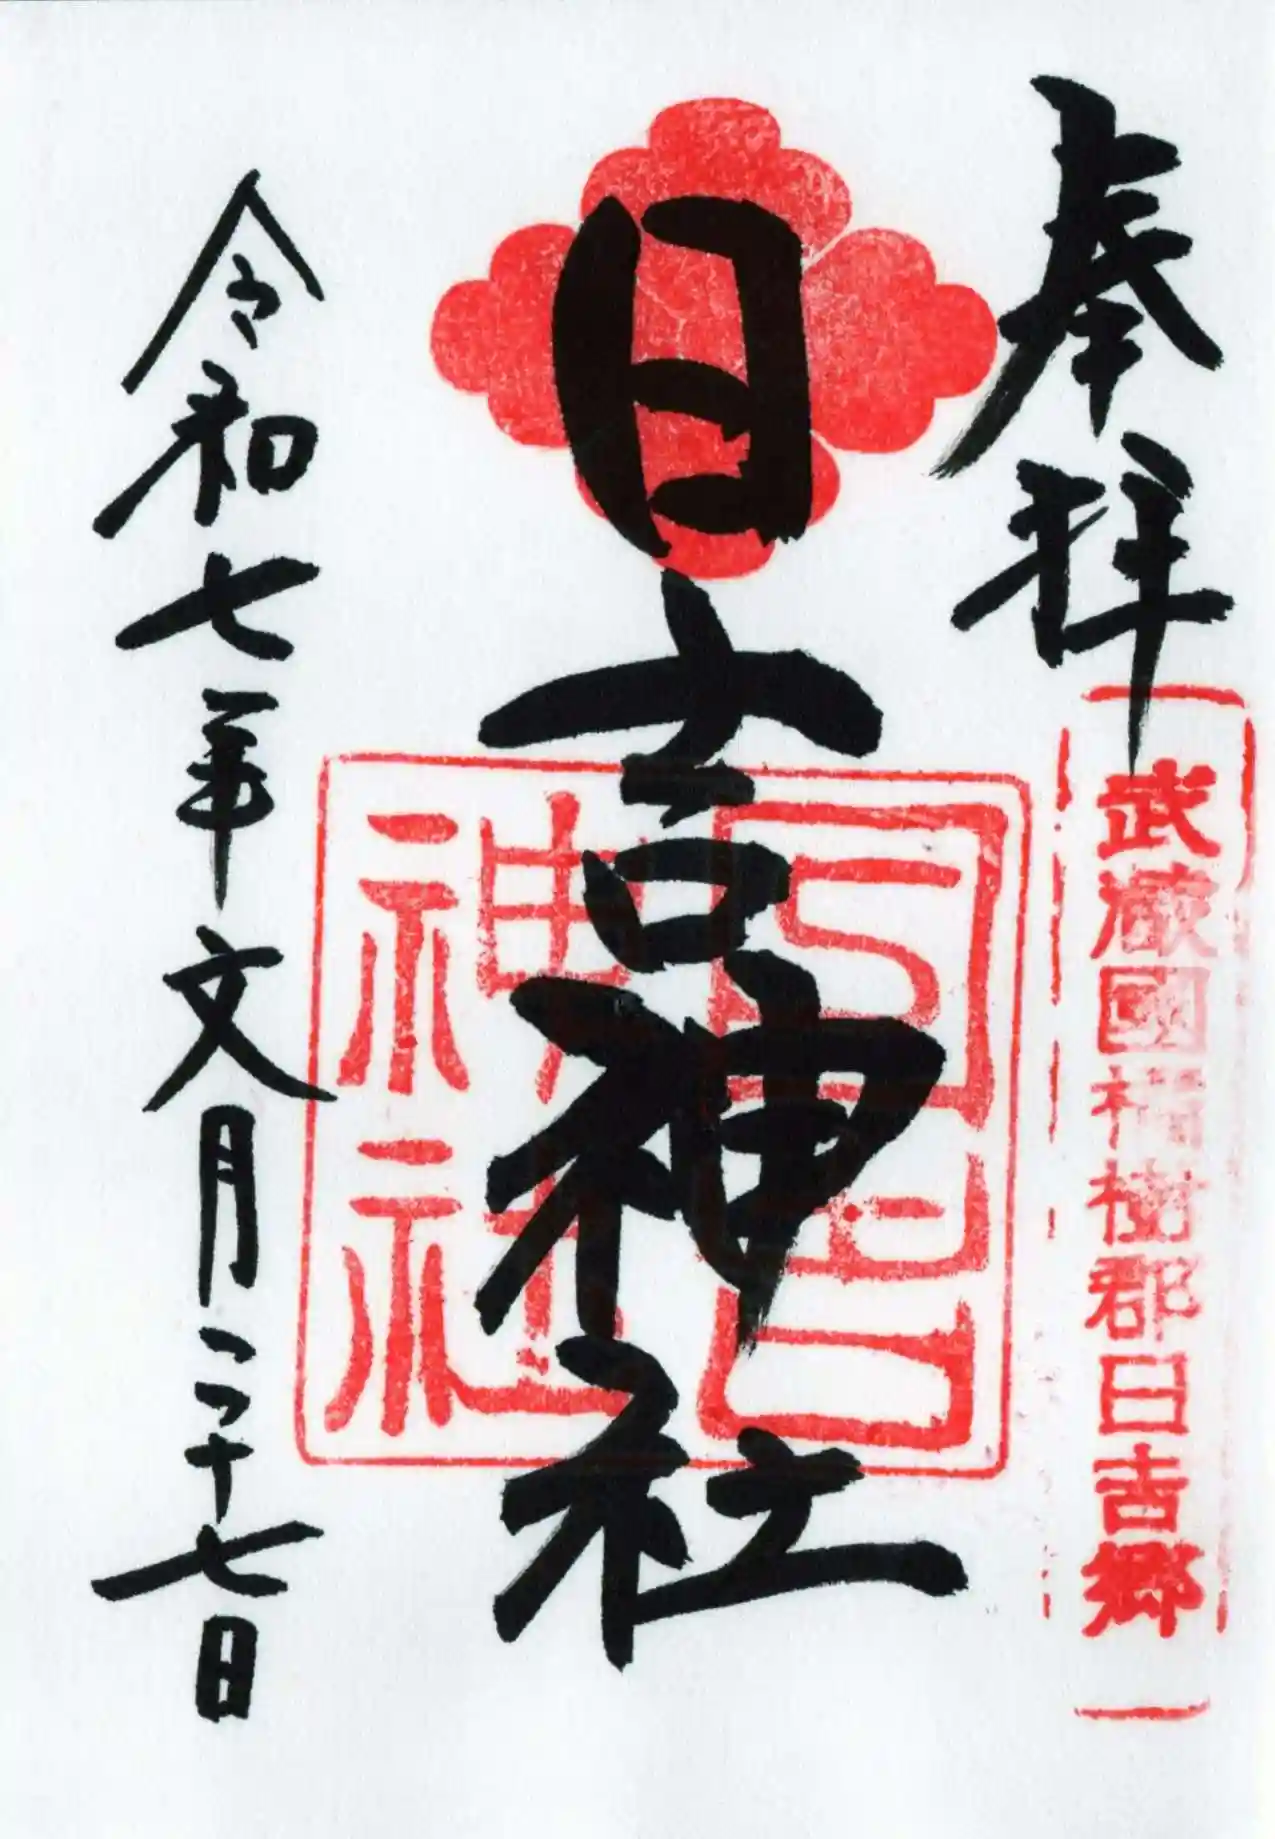 奉拝
武蔵國橘樹郡日吉郷
日吉神社
日吉
神社
令和七年文月二十七日